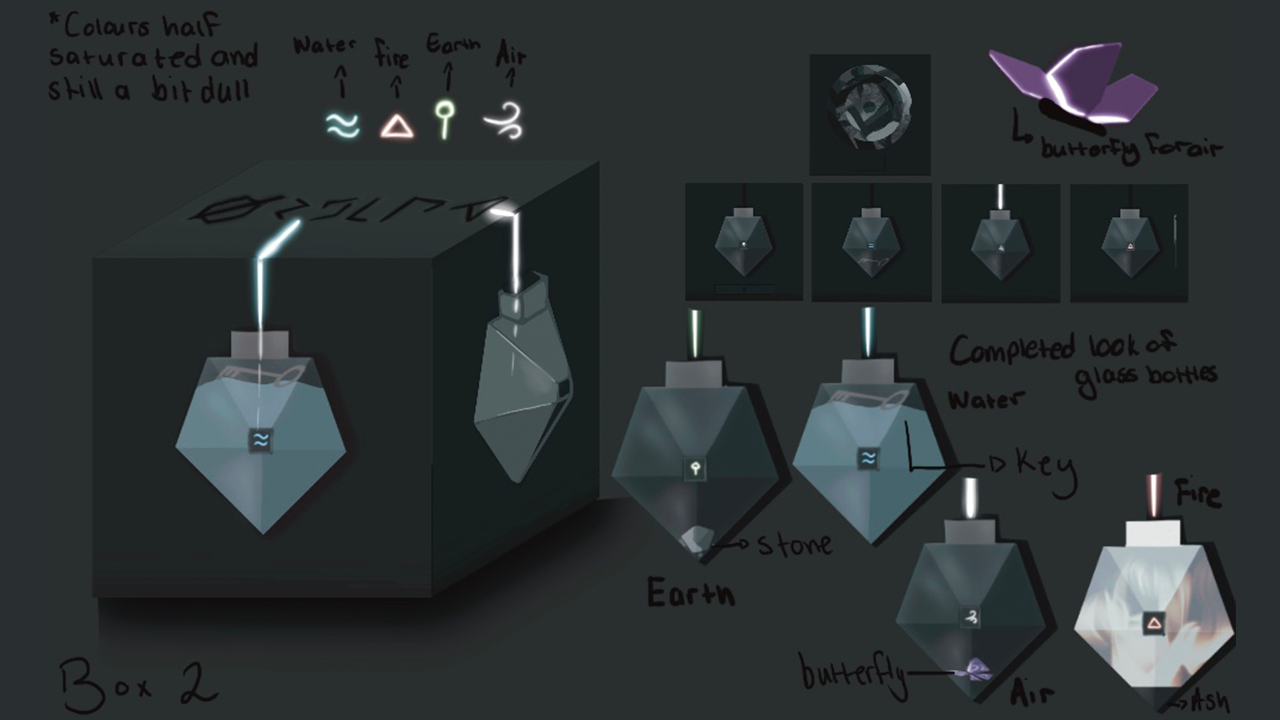 *Colours half
saturated and
still a bit dull
Water
fire
Earth
Air
butterfly for air
Completed look of
glass bottles
Water
Key
Fire
stone
Earth
butterfly
Air
Ash
Box 2